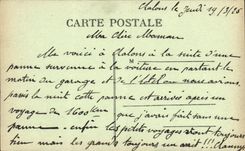 Chalons le Jeudi 19/3/26
CARTE POSTALE
Ma chère Maman
Me voici à Chalons à la suite d'une
panne survenue à la voiture en partant le
matin du garage et de l'hôtel où nous avions
passé la nuit cette panne est arrivée après un
voyage de 1600 km que j'avais fait sans une
panne - enfin les petits voyages vont toujours
bien mais les grands toujours un arrêt